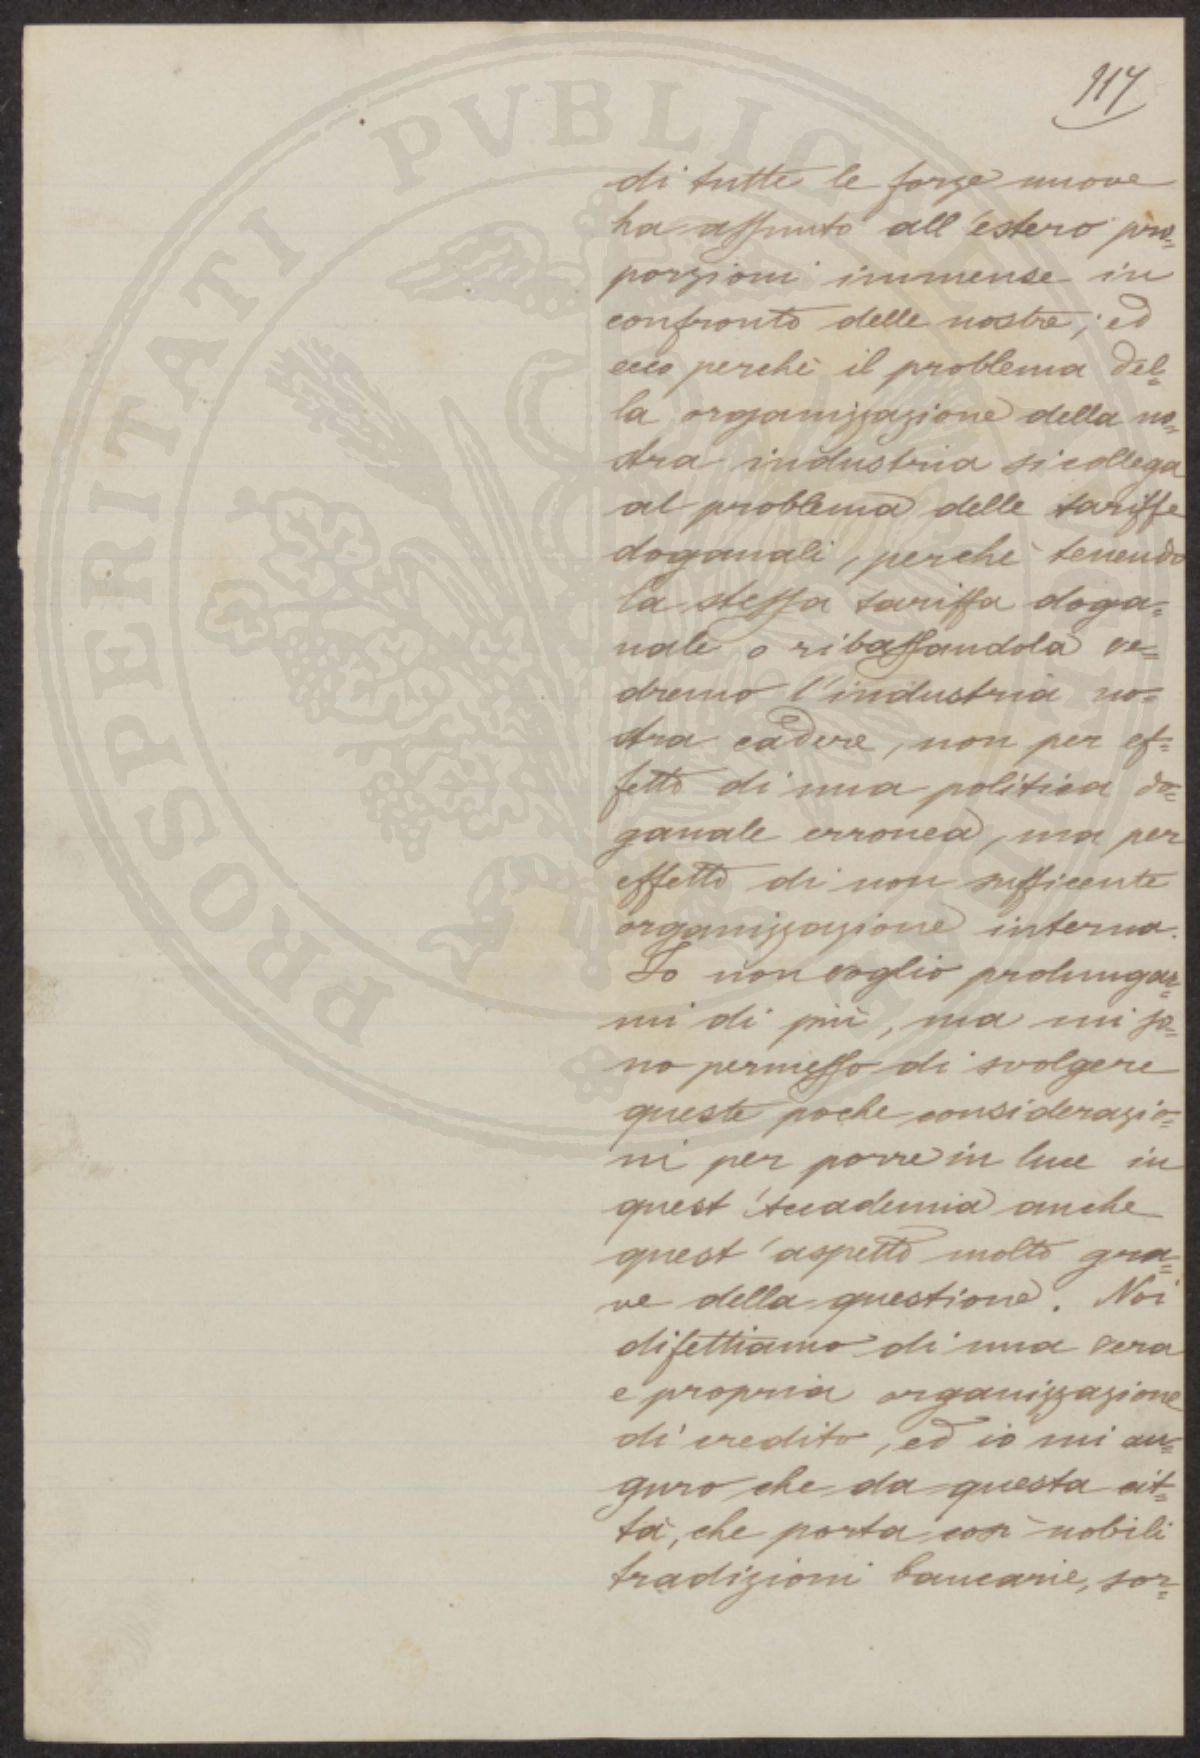 117
di tutte le forze nuove
ha assunto all'estero pro=
porzioni immense in
confronto delle nostre; ed
ecco perchè il problema del=
la organizzazione della no=
stra industria si collega
al problema delle tariffe
doganali, perchè tenendo
la stessa tariffa doga=
nale o ribassandola ve=
dremo l'industria no=
stra cadere, non per ef=
fetto di una politica do=
ganale erronea, ma per
effetto di non sufficente
organizzazione interna.
Io non voglio prolungar=
mi di più, ma mi so=
no permesso di svolgere
queste poche considerazio=
ni per porre in luce in
quest'Accademia anche
quest'aspetto molto gra=
ve della questione. Noi
difettiamo di una vera
e propria organizzazione
di credito, ed io mi au=
guro che da questa cit=
tà, che porta così nobili
tradizioni bancarie, sor=
PROSPERITATI PVBLICAE AVGENDAE